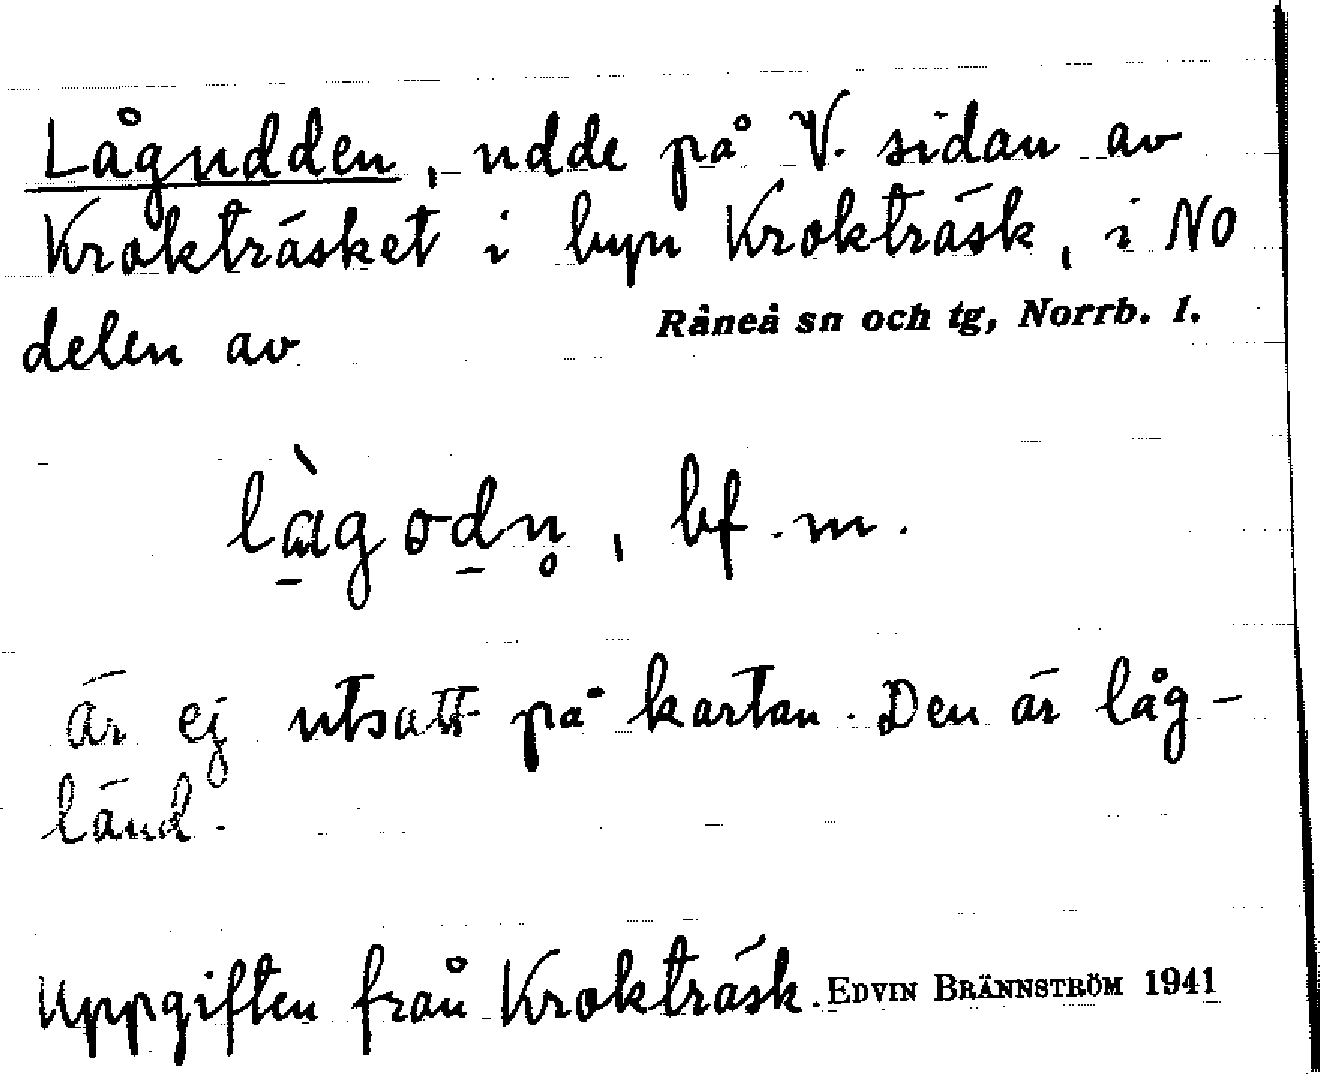 Lågudden, udde på V. sidan av
Krokträsket i byn Krokträsk, i NO
delen av Råneå sn och tg, Norrb. l.
là̱god̲n̥, bf. m.
är ej utsatt på kartan. Den är låg-
länd.
Uppgiften från Krokträsk. EDVIN BRÄNNSTRÖM 1941